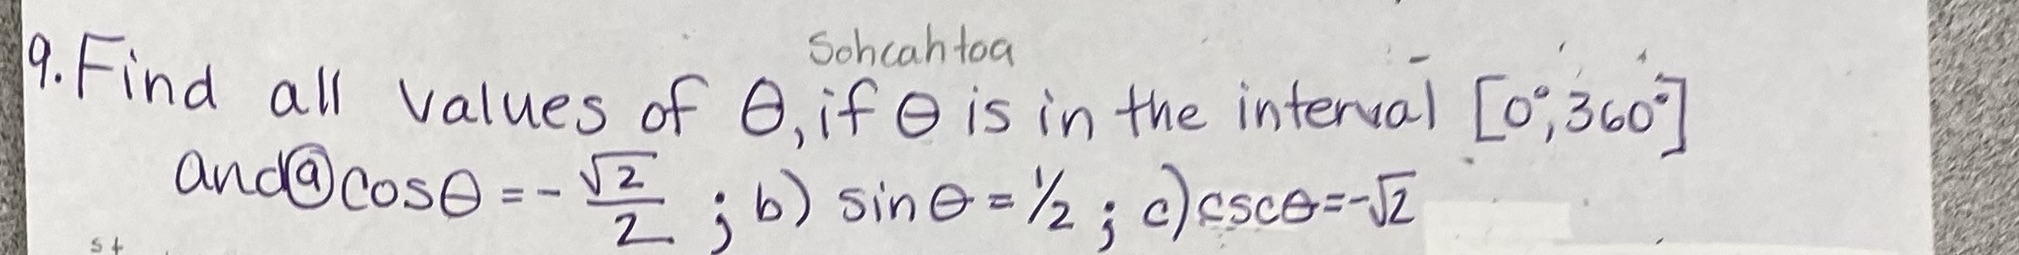 Sohcahtoa
9. Find all values of θ, if θ is in the interval [0°, 360°]
and ⓐ cosθ = -√2/2 ; b) sinθ = 1/2 ; c) cscθ = -√2
st